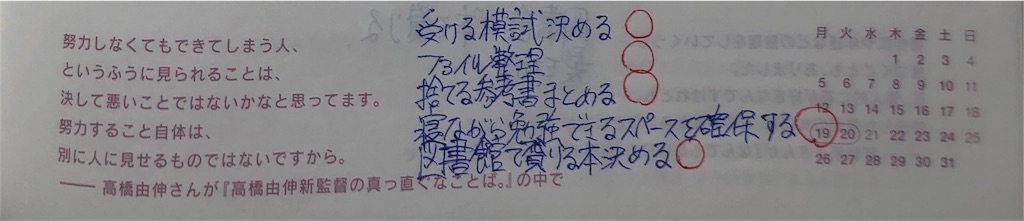 努力しなくてもできてしまう人、
というふうに見られることは、
決して悪いことではないかなと思ってます。
努力すること自体は、
別に人に見せるものではないですから。
—— 高橋由伸さんが『高橋由伸新監督の真っ直ぐなことば。』の中で
受ける模試決める
ファイル整理
捨てる参考書まとめる
寝ながら勉強できるスペースを確保する
図書館で借りる本決める
月 火 水 木 金 土 日
1 2 3 4
5 6 7 8 9 10 11
12 13 14 15 16 17 18
19 20 21 22 23 24 25
26 27 28 29 30 31